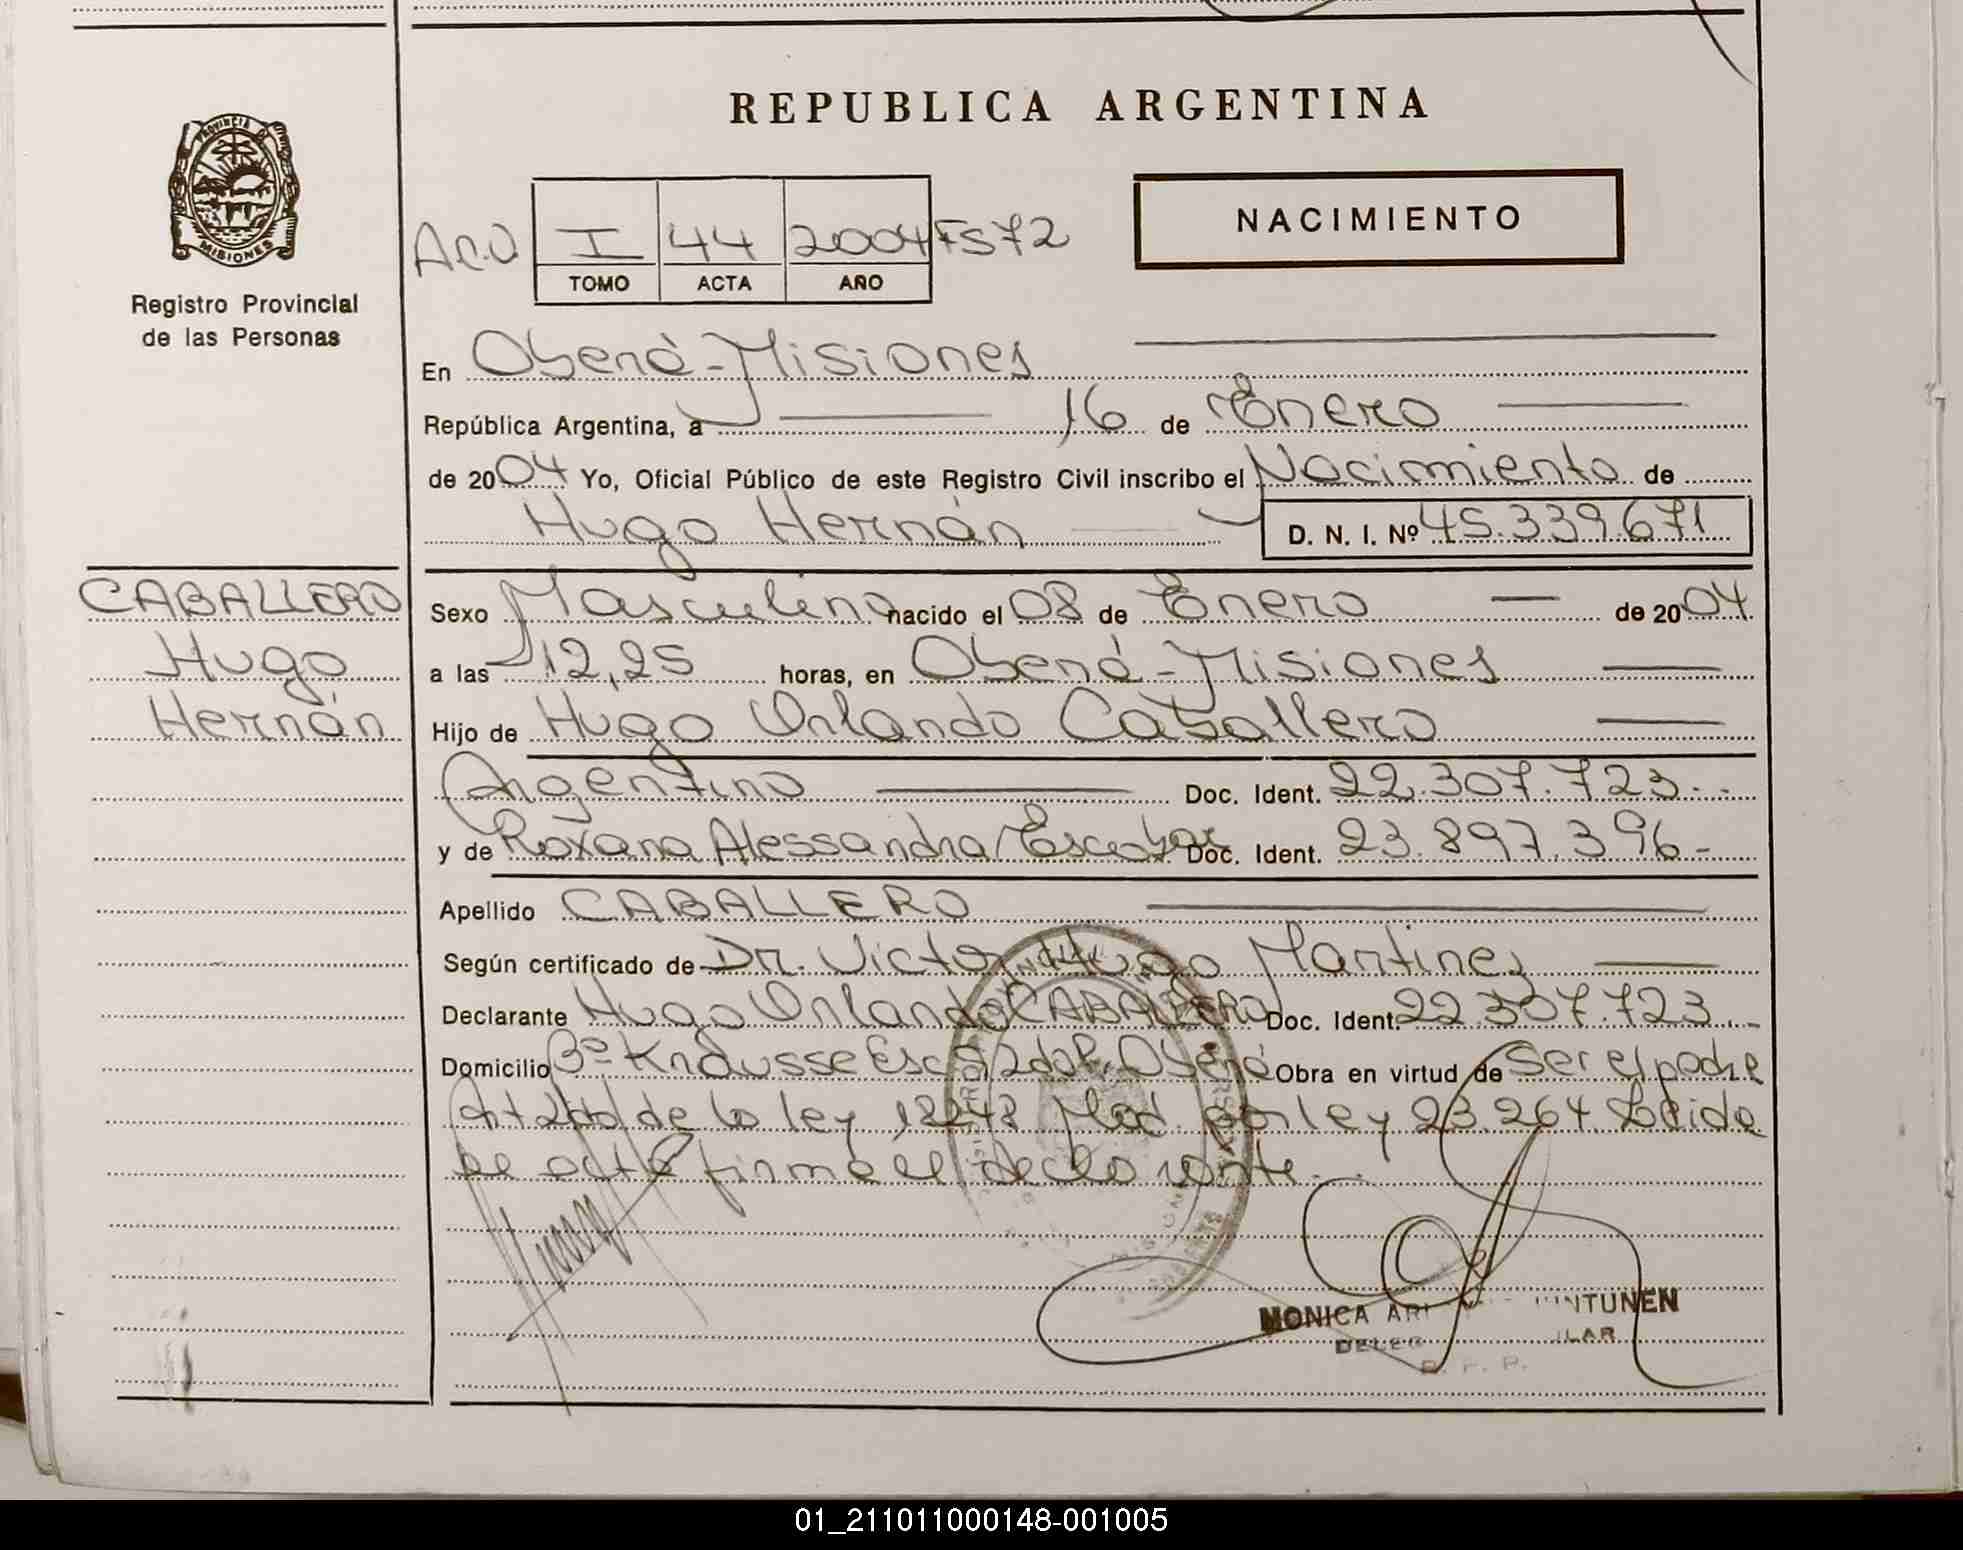 REPUBLICA ARGENTINA
PROVINCIA D MISIONES
Registro Provincial
de las Personas
NACIMIENTO
I 44 2004 Fs 72
TOMO ACTA AÑO
En Oberá - Misiones
República Argentina, a 16 de Enero
de 2004 Yo, Oficial Público de este Registro Civil inscribo el Nacimiento de
Hugo Hernán D. N. I. Nº 45.339.671
CABALLERO
Hugo
Hernán
Sexo Masculino nacido el 08 de Enero de 2004
a las 12,25 horas, en Oberá - Misiones
Hijo de Hugo Orlando Caballero
Argentino Doc. Ident. 22.307.723.-
y de Roxana Alessandra Escobar Doc. Ident. 23.897.396-
Apellido CABALLERO
Según certificado de Dr. Victor Hugo Martinez
Declarante Hugo Orlando CABALLERO Doc. Ident. 22.307.723.-
Domicilio Bº Knausse Esc Oberá Obra en virtud de ser el padre
Art de la ley 18248 Mod. por ley 23.264 Leida
el acta firma el declarante.
MONICA
01_211011000148-001005